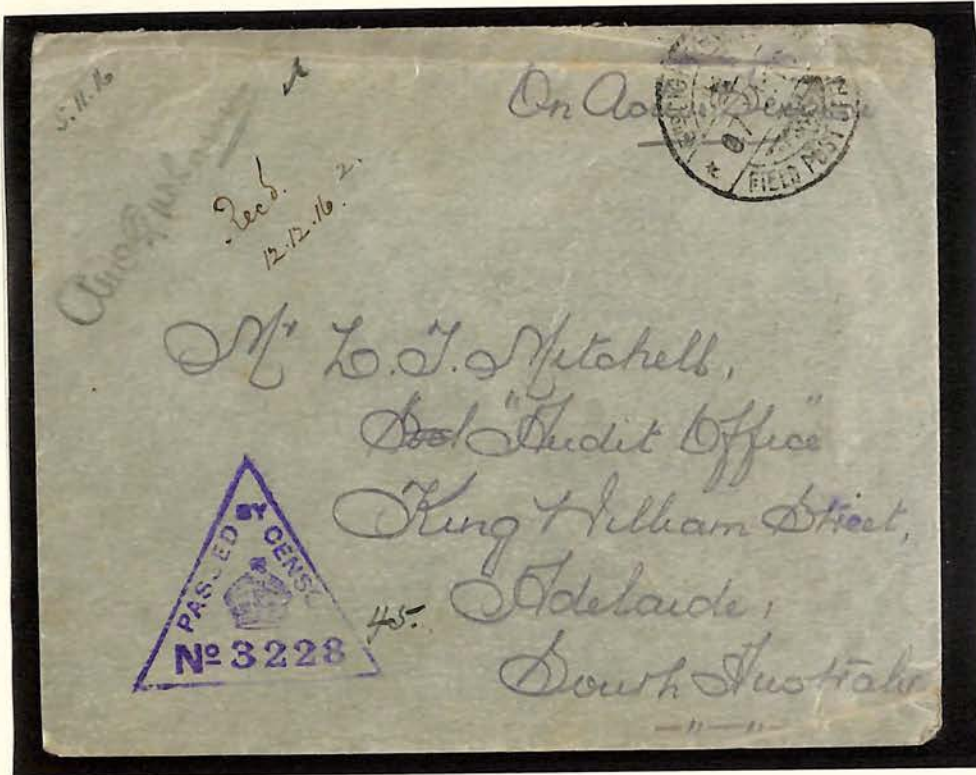 5.11.16
On Active Service
FIELD POST OF
Recd.
12.12.16. 2.
Mr L.T. Mitchell,
"Audit Office"
King William Street,
Adelaide,
South Australia
PASSED BY CENSO
No 3228
45.